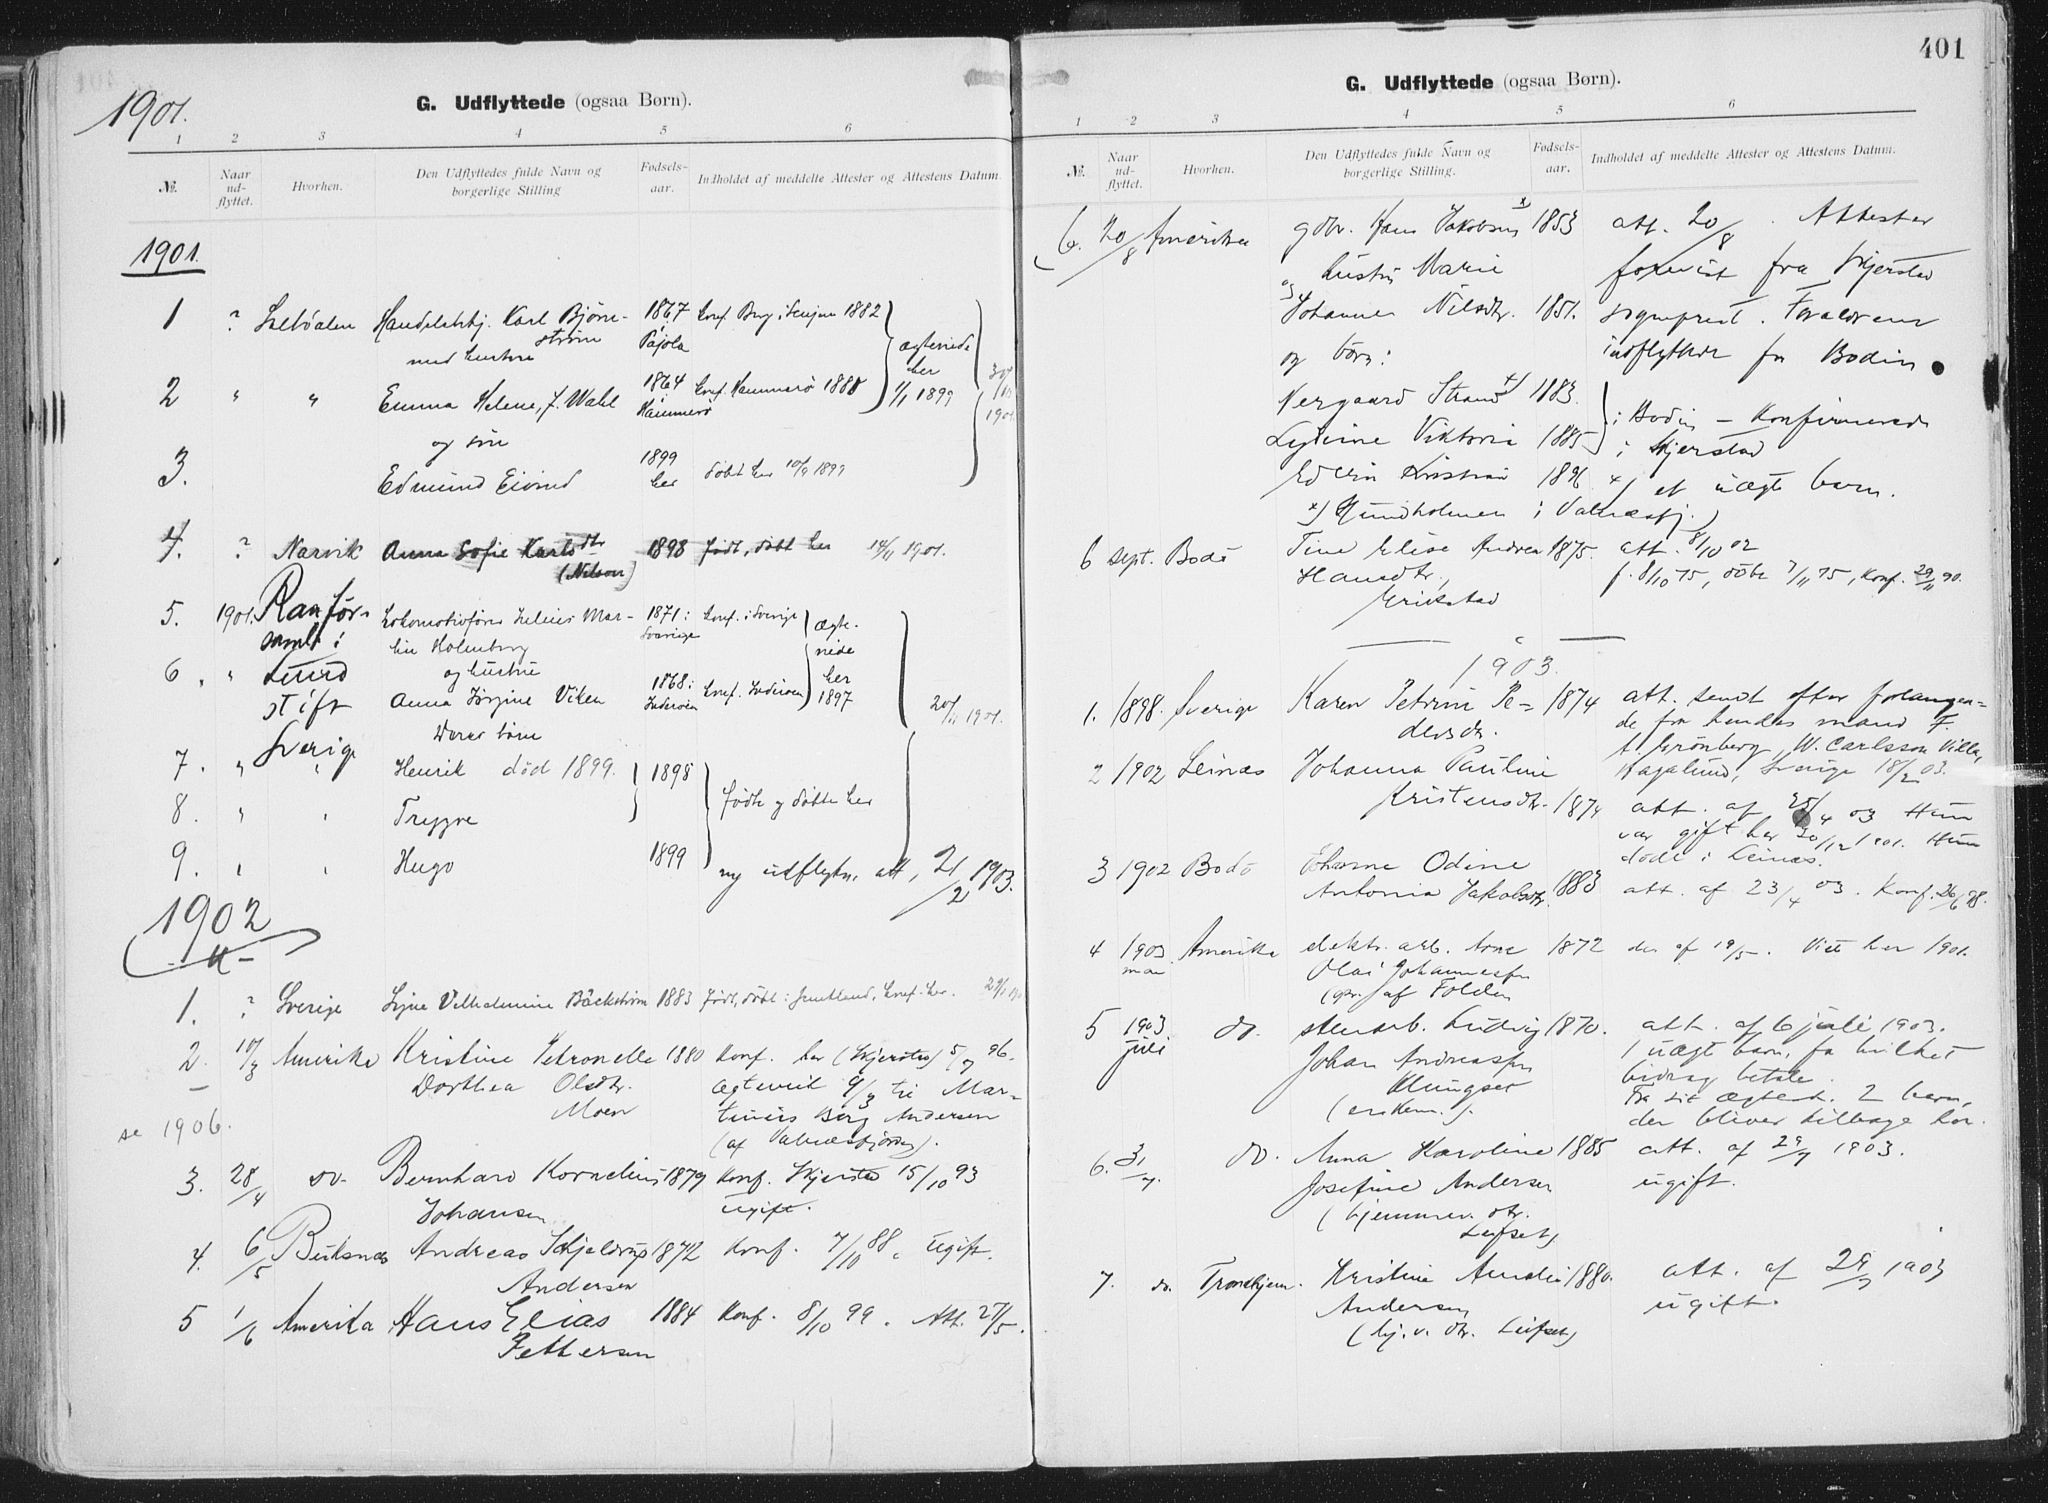 1901.
G. Udflyttede (ogsaa Børn).
1 2 3 4 5 6
№. Naar ud-flyttet. Hvorhen. Den Udflyttedes fulde Navn og borgerlige Stilling Fødsels-aar. Indholdet af meddelte Attester og Attestens Datum.
1901.
1 ? Karl Bjørn- 1867 konf. Berg i Senjen 1882
strøm Pajala ægteviede
med hustru her
2 " " Emma Helene, f. Wahl 1864 konf. Hammerø 1880 1/1 1899
Hammerø 1901
og søn
3. Edmund Eivind 1899 her døbt her 10/9 1899
4. ? Narvik Anna Sofie Karlsdtr 1898 født, døbt her 14/11 1901.
(Nilson)
5. 1901. Ranför- Mar- 1871: konf. i Sverige ægte-
saml. i tin Holmberg Sverige viede
6. " Lund og hustru her
stift Anna Jørgine Viken 1868: Inderøen konf. Inderøen 1897 20/11 1901.
Sverige Deres børn
7. " " Henrik død 1899. 1898
8. " " Trygve født og døbte her
9. " " Hugo 1899 ny udflytn. att. 21/2 1903.
1902
1. ? Sverige Signe Vilhelmine Bäckström 1883 født, døbt i Jemtland, konf. her.
2. 10/3 Amerika Kristine Petronelle 1880 Konf. her (Skjerstad) 5/7 96.
Dorthea Olsdtr. Ægteviet 9/3 til Mar-
Moen tinius Berg Andersen
se 1906. (af Valnæsfjorden).
3. 28/4 do. Bernhard Kornelius 1879 Konf. Skjerstad 15/10 93
Johansen ugift.
4. 6/5 Buksnæs Andreas Schjeldrup 1872 Konf. 7/10 88. Ugift.
Andersen
5 1/6 Amerika Hans Elias 1884 Konf. 8/10 99. Att. 27/5.
Pettersen
401
G. Udflyttede (ogsaa Børn).
1 2 3 4 5 6
№. Naar ud-flyttet. Hvorhen. Den Udflyttedes fulde Navn og borgerlige Stilling. Fødsels-aar. Indholdet af meddelte Attester og Attestens Datum.
6. 20/8 Amerika gdbr. Hans Jakobsen x) 1853 att. 20/8. Attester
og hustru Marie forevist fra Skjerstad
Johanna Nilsdtr. 1851. sogneprest. Forældrene
og børn: indflyttede fra Bodin
Nergaard Strand +) 1883. i Bodin – Konfirmerede
Viktoria 1885 i Skjerstad
Edvin Kristian 1896 +) et uægte barn.
x) Hundholmen i Valnæsfj.)
6 sept. Bodø Tine Elise Andrea 1875. att. 8/10 02
Hansdtr. f. 8/10 75, døbt 7/11 75, konf. 29/11 90.
Erikstad
1903.
1. 1898. Sverige Karen Petrine Pe- 1874 att. sendt efter forlangen-
dersdr. de fra hendes mand F.
Grönberg, W. Carlsson Villa,
2 1902 Leinæs Johanna Pauline Sverige 18/2 03.
Kristensdtr. 1874 att. af 25/4 03 Hun
var gift her 30/12 1901. Hun
døde i Leinæs.
3 1902 Bodø Johanne Odine
Antonia Jakobsdtr. 1883 att. af 23/4 03. Konf. 26/6 98.
4 1903 mai Amerika elektr. arb. Arne 1872 do. af 19/5. Viet her 1901.
Olai Johannesen
af Folden
5 1903 juli do. stenarb. Ludvig 1870. att. af 6 juli 1903.
Johan Andreassen 1 uægt barn, fo hvilket
Klungset bidrag betale.
(enkem.). Fra sit ægtesk. 2 barn,
der bliver tilbage her.
6. 31/7. do. Anna Karoline 1885 att. af 29/7 1903.
Josefine Andersen ugift.
(hjemmev. dtr.
Leifset)
7. do. Trondhjem. Kristine Amalie 1880. att. af 29/7 1903
Andersen ugift.
(hj. v. dtr. Leifset)